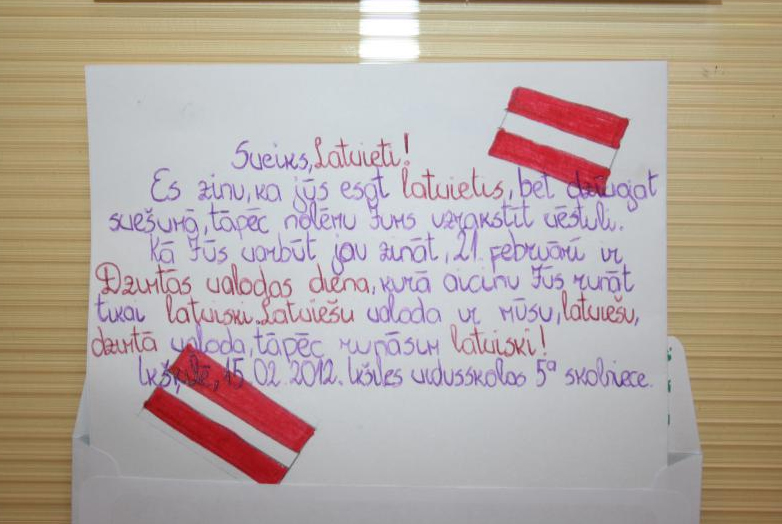 Sveiks, Latvieti!
Es zinu, ka jūs esat latvietis, bet dzīvojat
svešumā, tāpēc nolēmu Jums uzrakstīt vēstuli.
Kā Jūs varbūt jau zināt, 21. februārī ir
Dzimtās valodas diena, kurā aicinu Jūs runāt
tikai latviski. Latviešu valoda ir mūsu, latviešu,
dzimtā valoda, tāpēc runāsim latviski!
Ikšķilē, 15.02.2012. Ikšķiles vidusskolas 5ª skolniece.